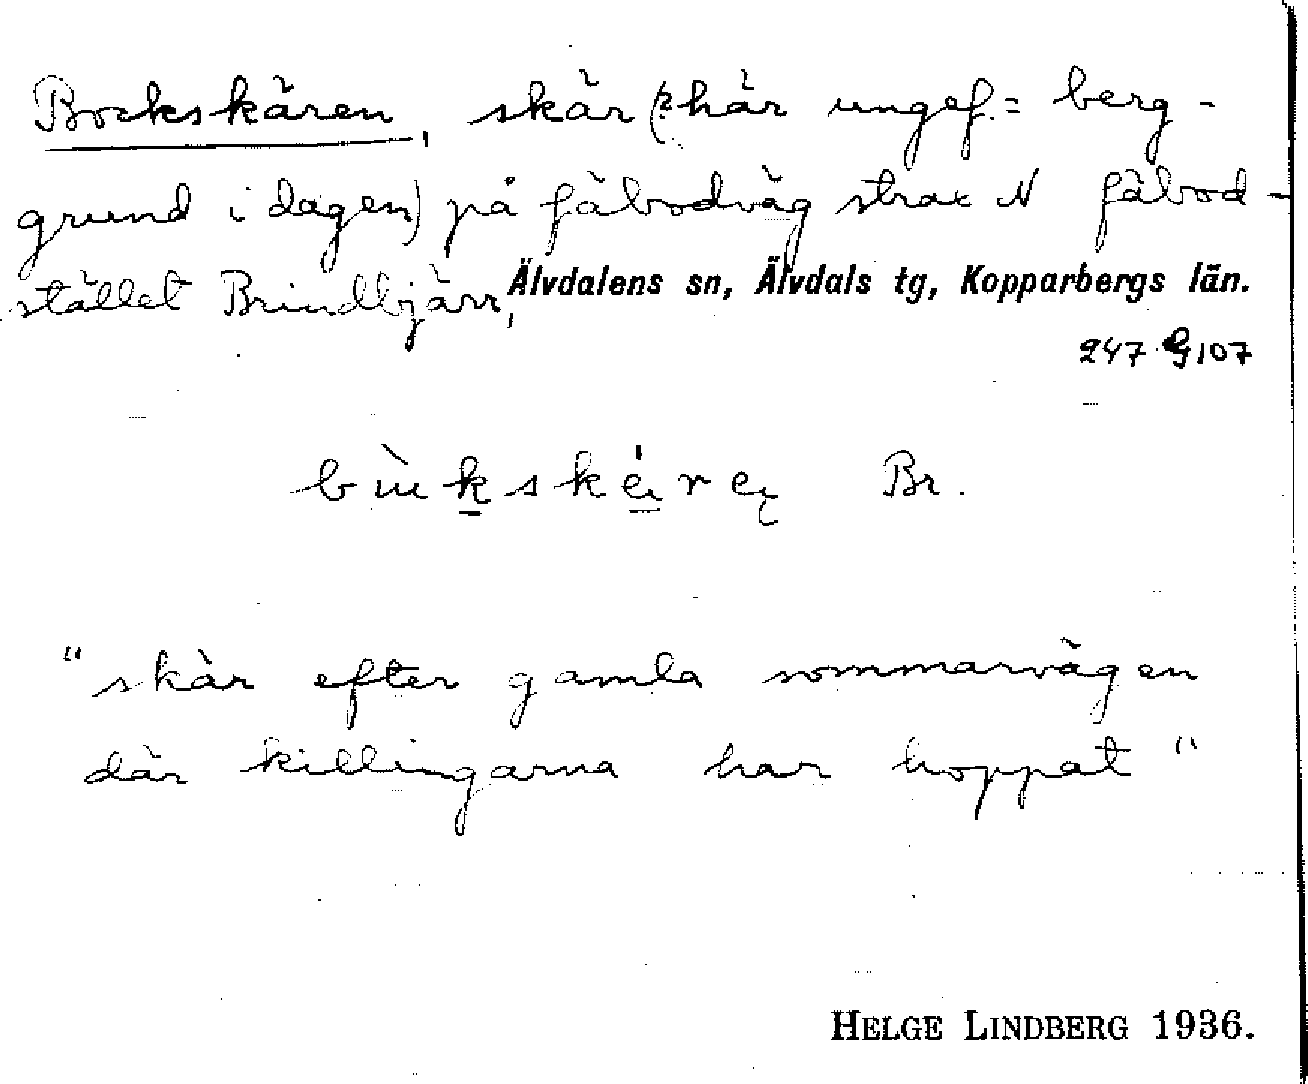 Bockskären, skär (: här ungef. = berg-
grund i dagen) på fäbodväg strax N fäbod-
stället Brindbjärr, Älvdalens sn, Älvdals tg, Kopparbergs län.
247 G 107
Br.
"skär efter gamla sommarvägen
där killingarna har hoppat"
HELGE LINDBERG 1936.